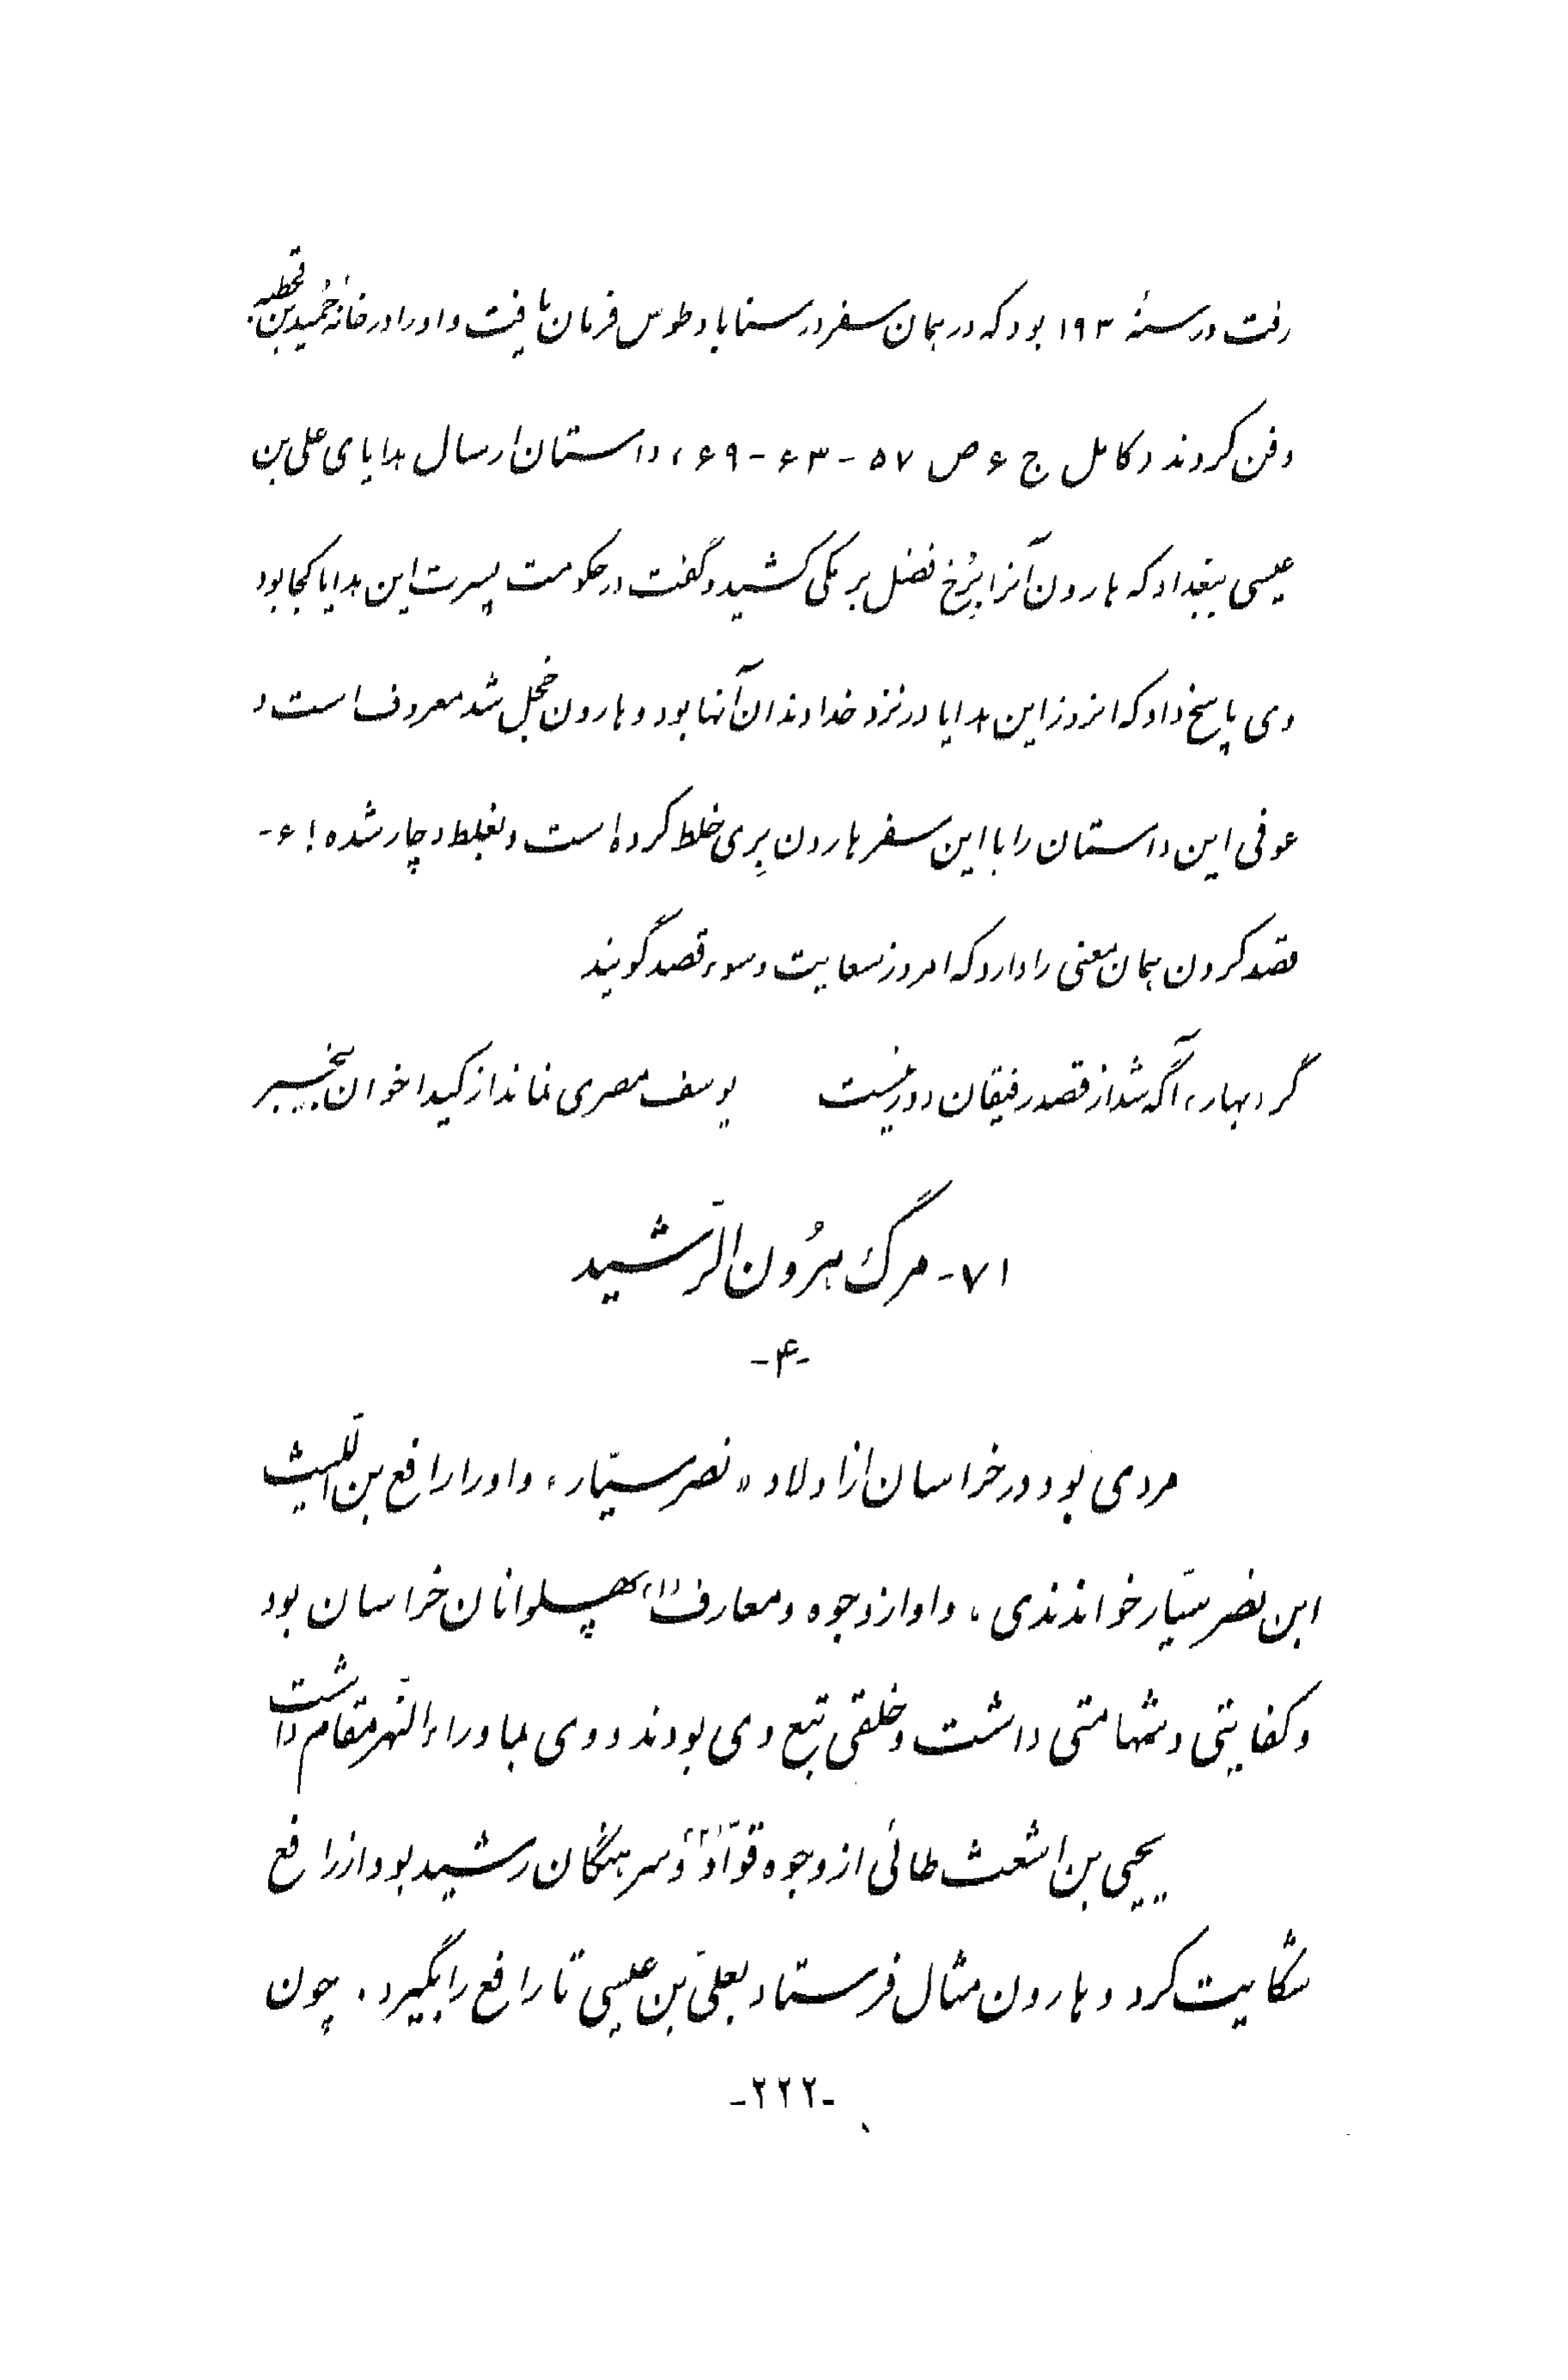 رفت در سنهٔ ۱۹۳ بود که در همان سفر در سناباد طوس فرمان یافت و او را در خانهٔ حُمید بن قحطبه
دفن کردند «کامل ج ۶ ص ۵۷ - ۶۳ - ۶۹» داستان ارسال هدایای علی بن
عیسی ببغداد که هارون آنرا برُخ فضل برمکی کشید و گفت در حکومت پسرت این هدایا کجا بود
وی پاسخ داد که انروز این هدایا در نزد خداوندان آنها بود و هارون خجل شد معروف است و
عوفی این داستان را با این سفر هارون برِی خلط کرده است و بغلط دچار شده! ۶-
قصد کردن همان معنی را دارد که امروز سعایت و سوء قصد گویند
گر «بهار» آگه شد از قصد رفیقان دور نیست یوسف مصری نماند از کید اخوان بیخبر
۷۱- مرگ هرُون الرّشید
-۴-
مردی بود در خراسان از اولاد «نصر سیّار» و او را رافع بن اللّیث
ابن نصر سیّار خواندندی، و او از وجوه و معارف (۱) پهلوانان خراسان بود
و کفایتی و شهامتی داشت و خلقی تبع وی بودند و وی بماوراء النّهر مقام داشت
یحیی بن اشعث طائی از وجوه قوّاد (۲) و سرهنگان رشید بود از رافع
شکایت کرد و هارون مثال فرستاد بعلیّ بن عیسی تا رافع را بگیرد. چون
-۲۲۲-